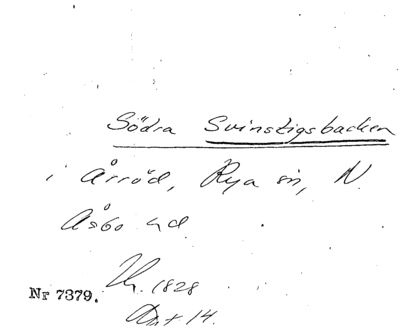 Södra Svinstigsbacken
i Årröd, Rya sn, N.
Åsbo hd
Nr 7379.
1828
Akt 14.